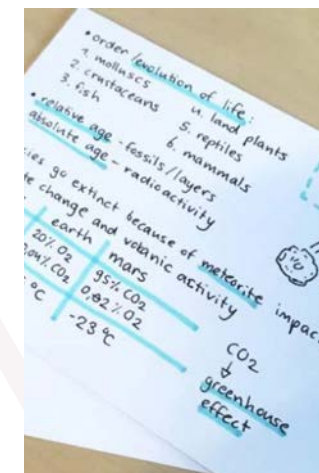 • order/evolution of life:
1. molluscs
2. crustaceans
3. fish
4. land plants
5. reptiles
6. mammals
• relative age - fossils/layers
absolute age - radioactivity
go extinct because of meteorite impac
change and volcanic activity
earth mars
20% O2 95% CO2
0.04% CO2 0.02% O2
°C -23 °C
CO2
↓
greenhouse
effect